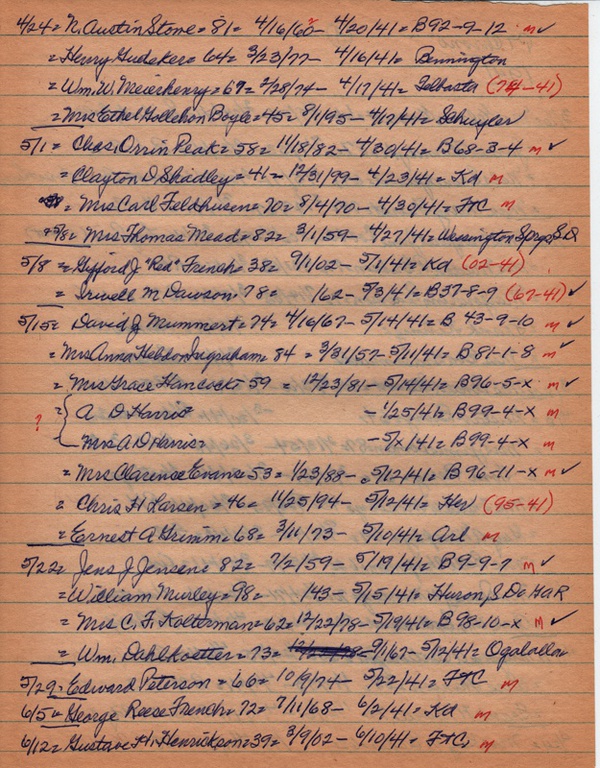 4/24 = N. Austin Stone = 81 = 4/16/60 - 4/20/41 = B92-9-12 m ✓
= Henry Gudeker = 64 = 3/23/77 - 4/16/41 = Bennington
= Wm. W. Meierhenry = 67 = 2/28/74 - 4/17/41 = Telbasta (74-41)
= Mrs Ethel Gollehon Boyle = 45 = 8/1/95 - 4/17/41 = Schuyler
5/1 = Chas. Orrin Peak = 58 = 11/18/82 - 4/30/41 = B68-3-4 m ✓
= Clayton D. Shadley = 41 = 12/31/99 - 4/23/41 = Kd m
= Mrs Carl Feldhusen = 70 = 8/4/70 - 4/30/41 = FtC m
= Mrs Thomas Mead = 82 = 3/1/59 - 4/27/41 = Wessington Sprgs, S.D
5/8 = Gifford J "Red" French = 38 = 9/1/02 - 5/1/41 = Kd (02-41)
= Irwell M Dawson = 78 = 162 - 5/3/41 = B37-8-9 (67-41) ✓
5/15 = David J Mummert = 74 = 4/16/67 - 5/14/41 = B 43-9-10 m ✓
= Mrs Anna Hebdon Ingraham = 84 = 3/31/57 - 5/11/41 = B 81-1-8 m ✓
= Mrs Grace Hancock = 59 = 12/23/81 - 5/14/41 = B96-5-x m ✓
? = { A D Harris - 1/25/41 = B99-4-x m
Mrs A D Harris = - 5/x/41 = B99-4-x m
= Mrs Clarence Evans = 53 = 1/23/88 - 5/12/41 = B 96-11-x m ✓
= Chris H Larsen = 46 = 11/25/94 - 5/12/41 = Her (95-41)
= Ernest A Grimm = 68 = 3/11/73 - 5/10/41 = Arl m
5/22 = Jens J. Jensen = 82 = 7/2/59 - 5/19/41 = B9-9-7 m ✓
= William Murley = 98 = 143 - 5/15/41 = Huron, S.D. GAR
= Mrs C. F. Kolterman = 62 = 12/22/78 - 5/19/41 = B 98-10-x m ✓
= Wm. Dahlkoetter = 73 = 9/1/67 - 5/12/41 = Ogalalla
5/29 = Edward Peterson = 66 = 10/9/74 - 5/22/41 = FtC m
6/5 = George Reese French = 72 = 7/11/68 - 6/2/41 = Kd m
6/12 = Gustave H. Henrickson = 39 = 3/9/02 - 6/10/41 = FtC m